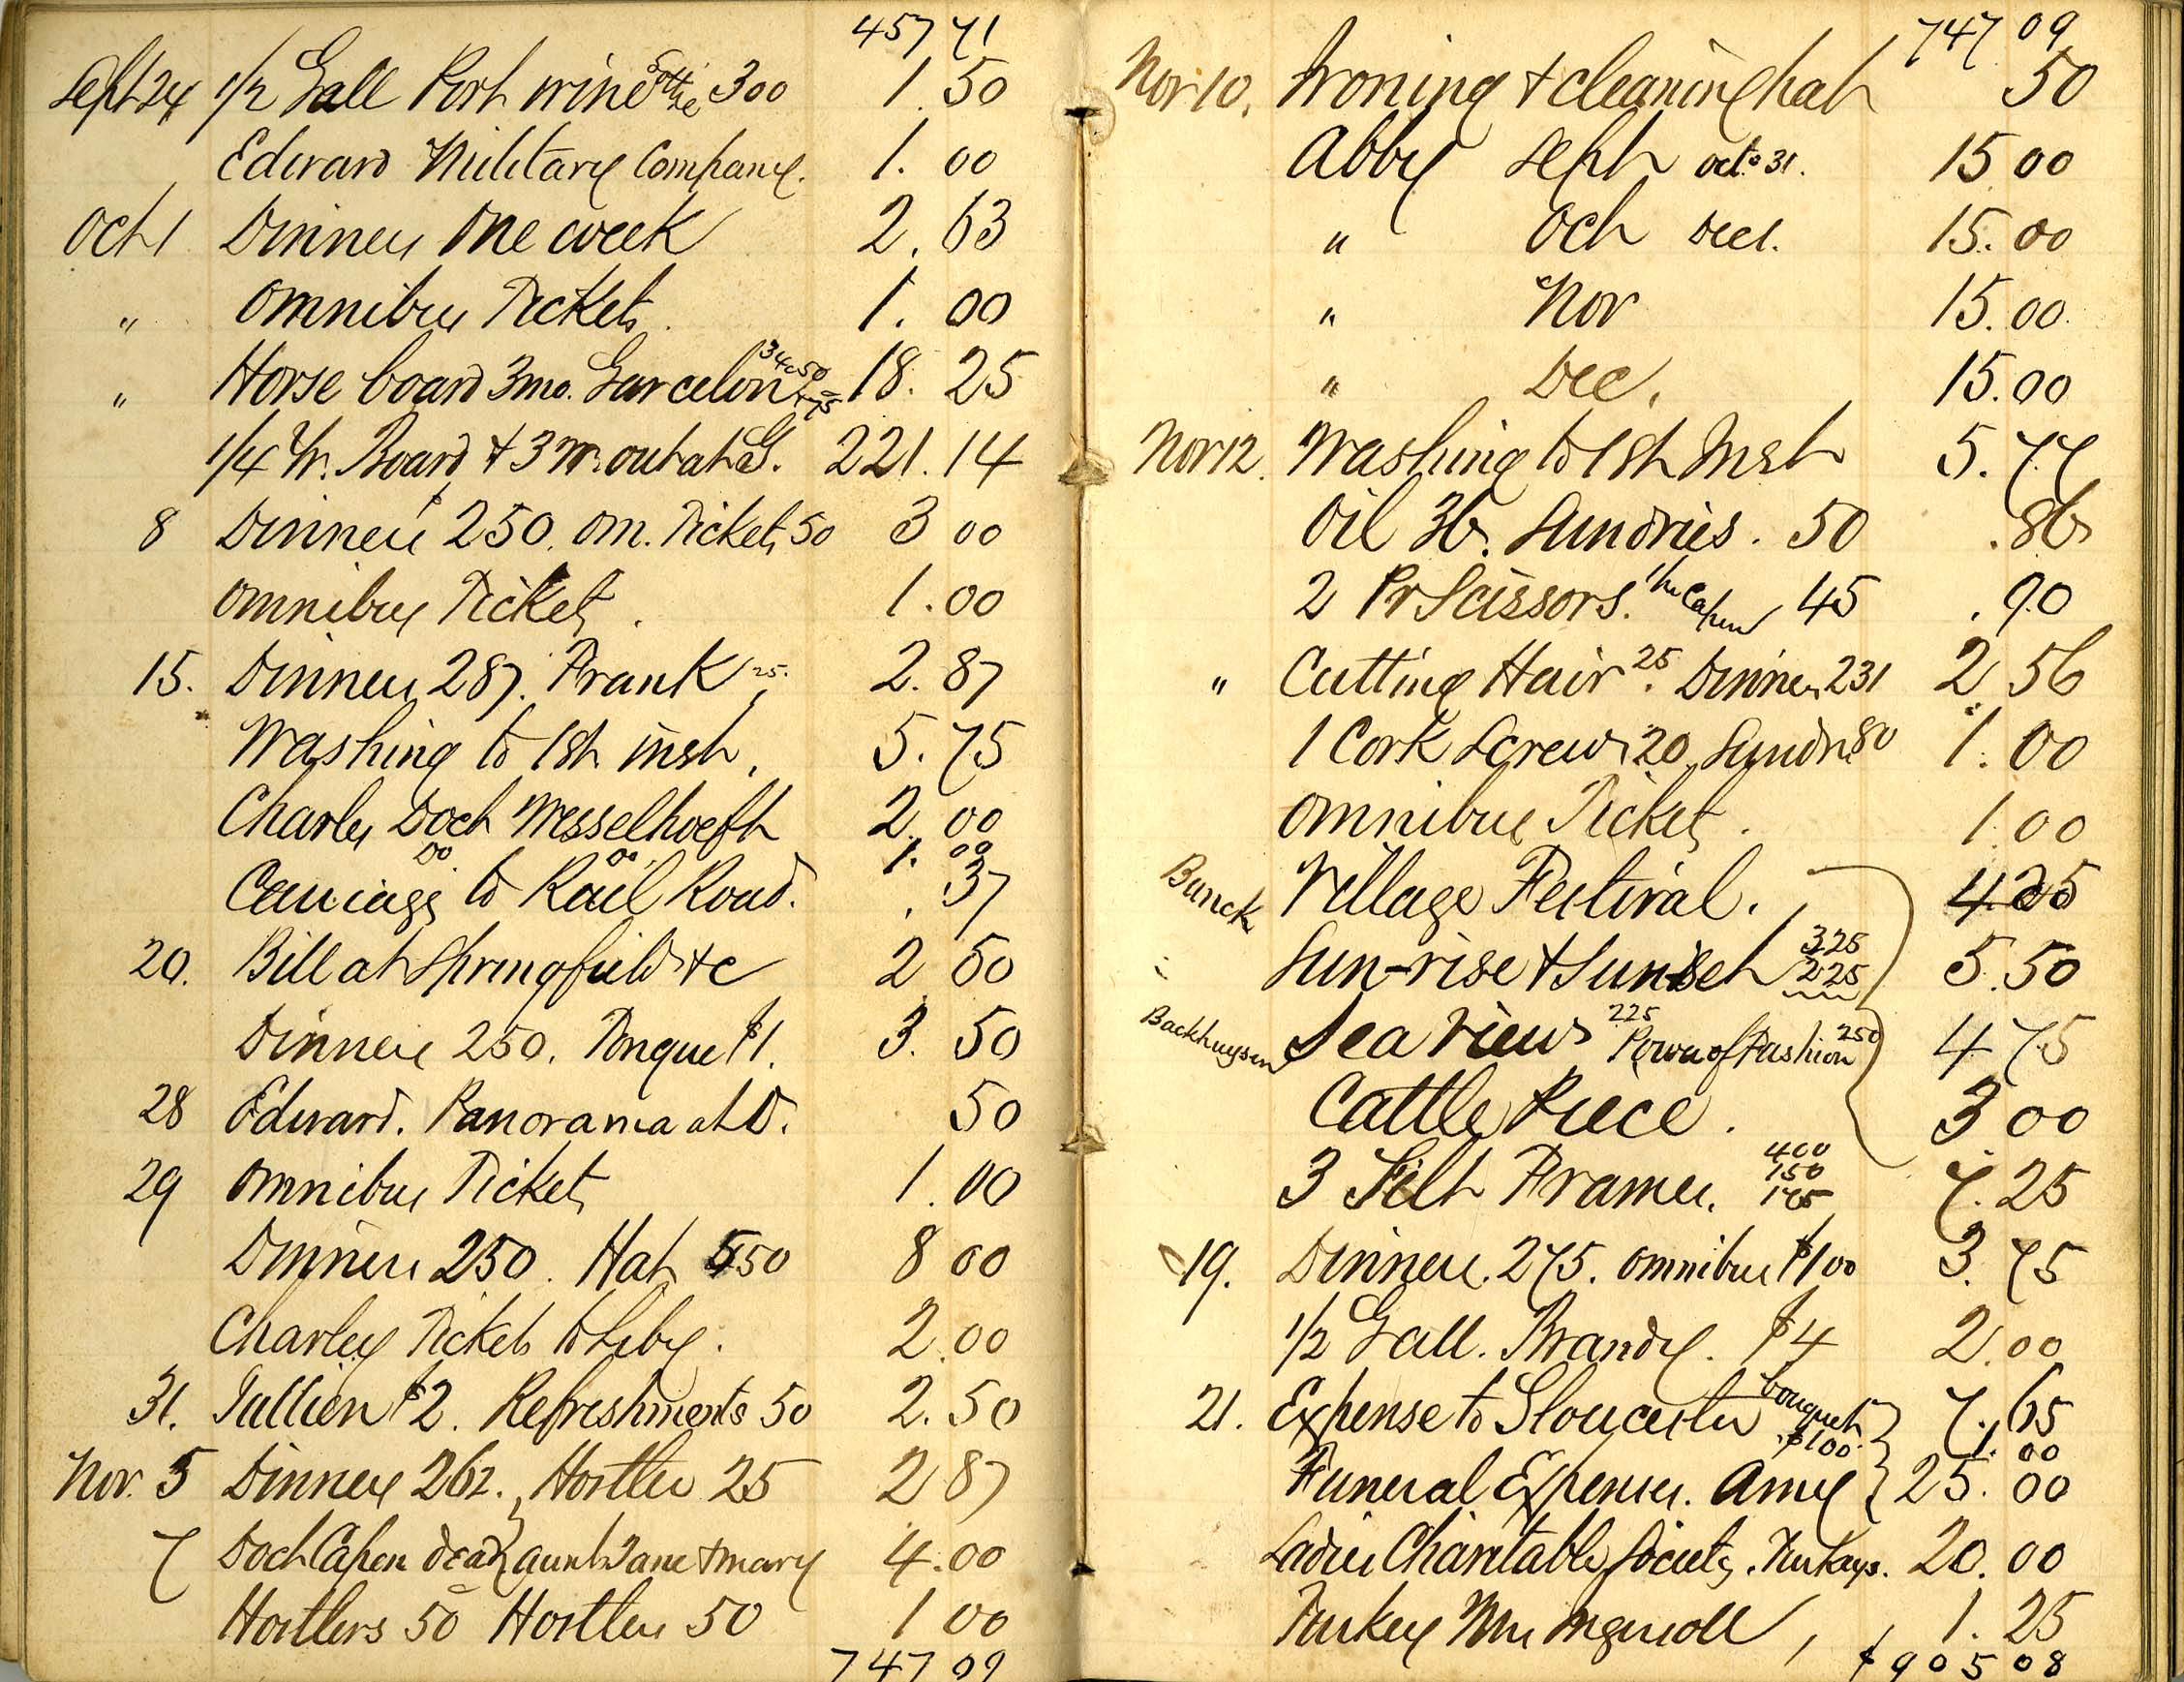 457 71
Sept 24 1/2 Gall Port wine Bottle 300 1.50
Edward Military Company. 1.00
Oct 1 Dinners One week 2.63
" Omnibus Tickets. 1.00
" Horse board 3 mo. Garcelon 34.50 18.25
1/4 Yr. Board & 3 out at G. 221.14
8 Dinners 250. Om. Tickets 50 3 00
Omnibus Tickets. 1.00
15. Dinners 287. Frank 25. 2.87
Washing to 1st inst. 5.75
Charley Doct Wesselhoeft 2.00
Do Do 1.00
Carriage to Rail Road. .37
20. Bill at Springfield &c 2 50
Dinners 250. Tongue $1. 3.50
28 Edward. Panorama at D. 50
29 Omnibus Tickets 1.00
Dinners 250. Hat 550 8 00
Charley Tickets to Liby. 2.00
31. Jullien $2. Refreshments 50 2.50
Nov. 5 Dinners 262. Hostler 25 2 87
7 Doct Capen dead aunt Jane & mary 4.00
Hostlers 50 Hostlers 50 1 00
747 09
747 09
Nov 10. Ironing & cleaning hat 50
Abby Sept Oct 31. 15 00
" Oct Dec 1. 15.00
" Nov 15.00
" Dec. 15.00
Nov 12. Washing to 1st Inst 5.77
Oil 36. Sundries. 50 .86
2 Pr Scissors. Capen 45 .90
" Cutting Hair 25. Dinners 231 2 56
1 Cork Screw 20 Sundr 80 1.00
Omnibus Tickets. 1.00
Bunck Village Festival. 4.25
" Sun-rise & Sunset 325 225 5.50
Backhuysen Sea View 225 Power of Fashion 250 4 75
Cattle Piece. 3 00
3 Gilt Frames. 400 150 175 7.25
19. Dinners. 275. Omnibus $1 00 3.75
1/2 Gall. Brandy. $4 2.00
21. Expense to Gloucester 7.65
bouquet $1 00 1.00
Funeral Expenses. Amy 25.00
Ladies Charitable Society. Turkeys. 20.00
Turkey Mr Ingersoll 1.25
$905 08